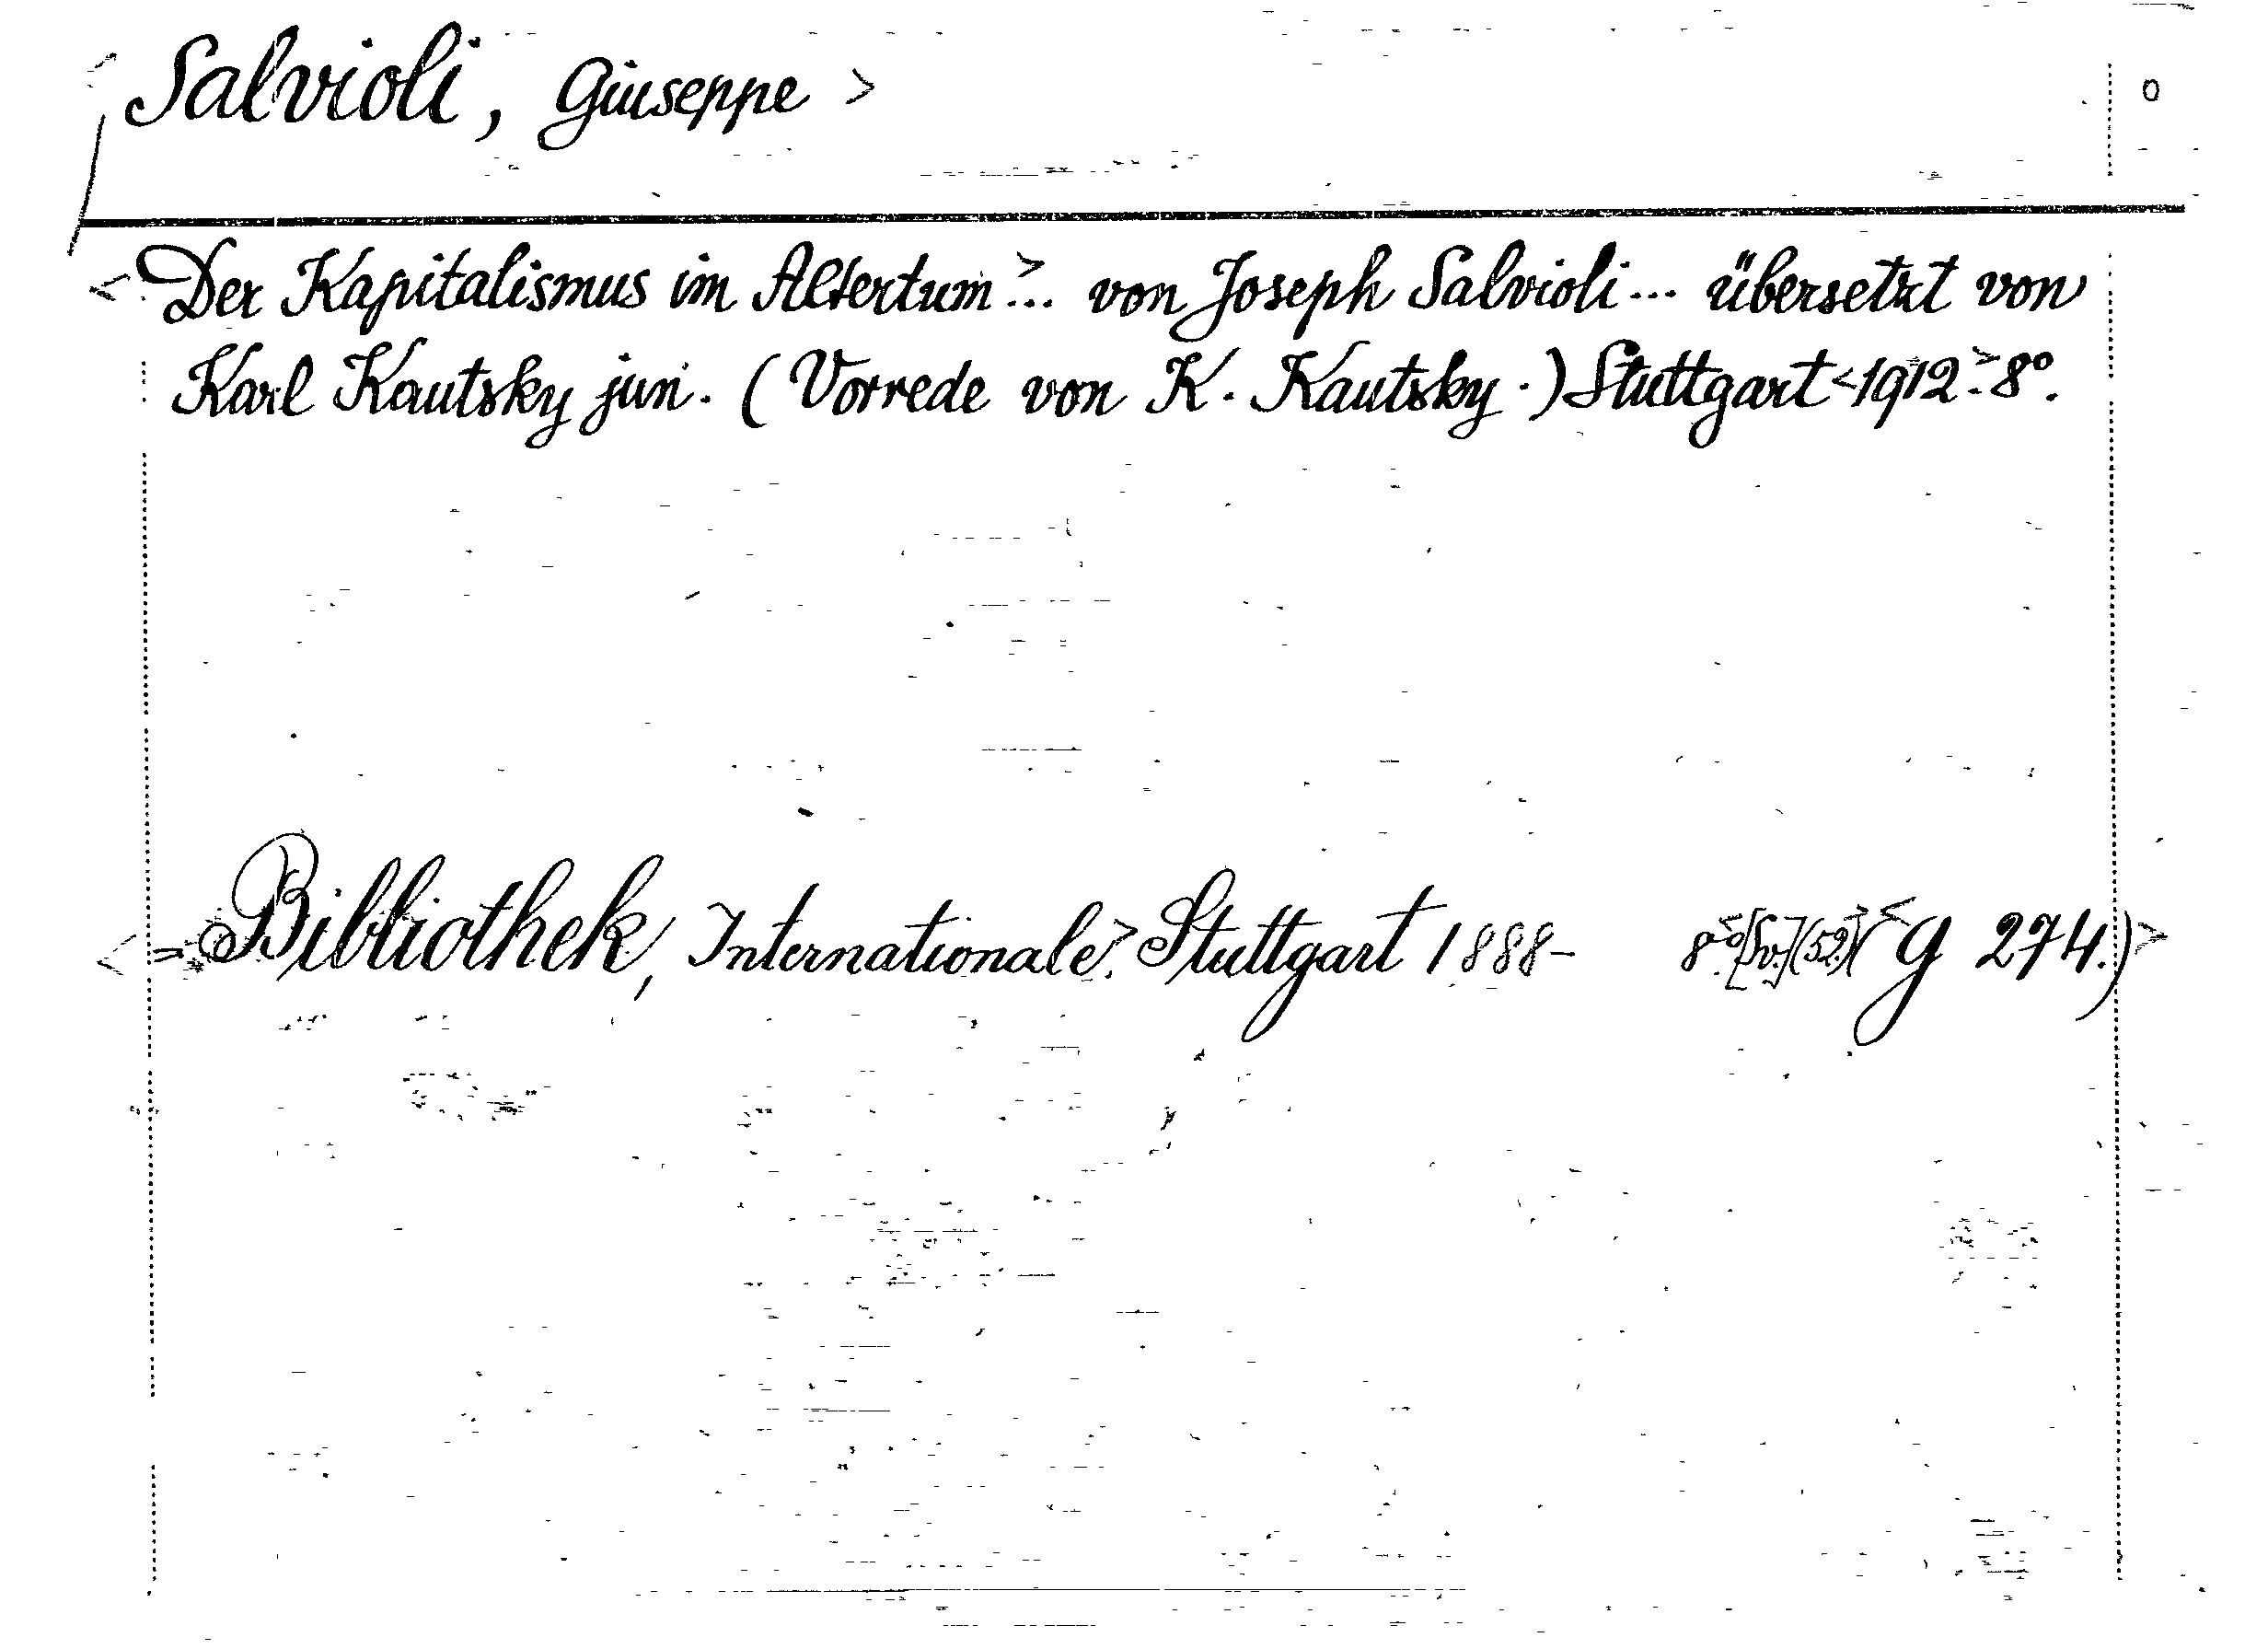 <Salvioli, Giuseppe> o
<Der Kapitalismus im Altertum>... von Joseph Salvioli... übersetzt von
Karl Kautsky jun. (Vorrede von K. Kautsky.) Stuttgart <1912>. 8°.
<=Bibliothek, Internationale>. Stuttgart 1888- 8<°. (52.)> <(G 274.)>